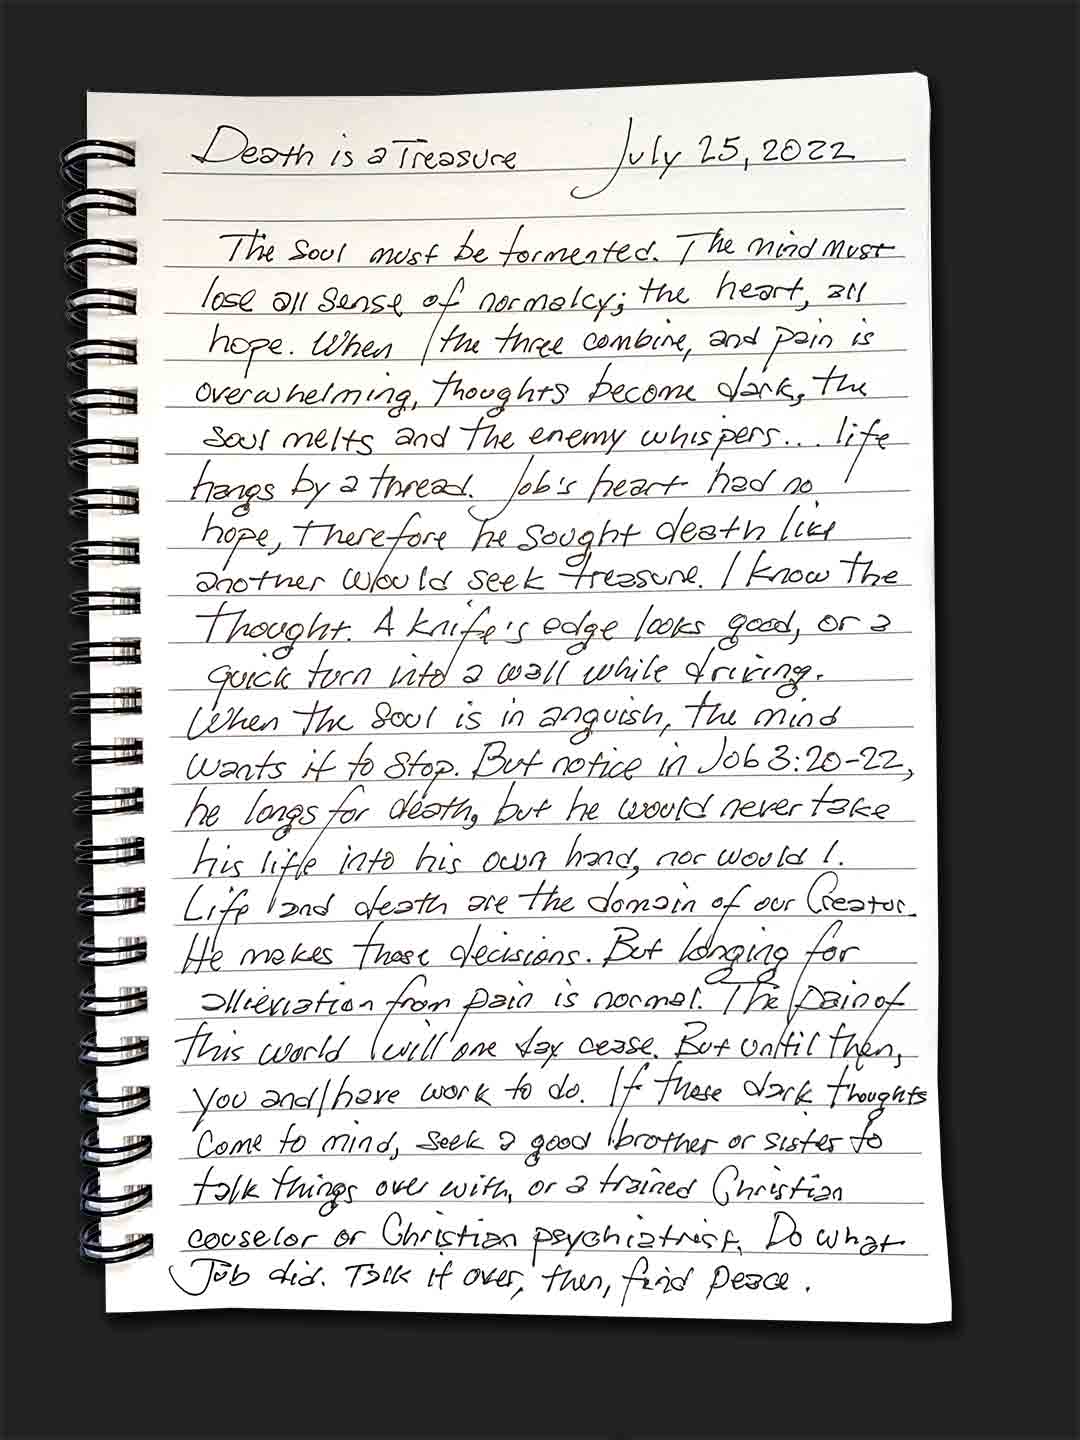 Death is a Treasure July 25, 2022
The Soul must be tormented. The mind must
lose all sense of normalcy; the heart, all
hope. When the three combine, and pain is
overwhelming, thoughts become dark, the
soul melts and the enemy whispers... life
hangs by a thread. Job's heart had no
hope, therefore he sought death like
another would seek treasure. I know the
thought. A knife's edge looks good, or a
quick turn into a wall while driving.
When the soul is in anguish, the mind
wants it to stop. But notice in Job 3:20-22,
he longs for death, but he would never take
his life into his own hand, nor would I.
Life and death are the domain of our Creator.
He makes those decisions. But longing for
allieviation from pain is normal. The pain of
this world will one day cease. But unttil then,
you and I have work to do. If these dark thoughts
come to mind, seek a good brother or sister to
talk things over with, or a trained Christian
couselor or Christian psychiatrist. Do what
Job did. Talk it over, then, find peace.